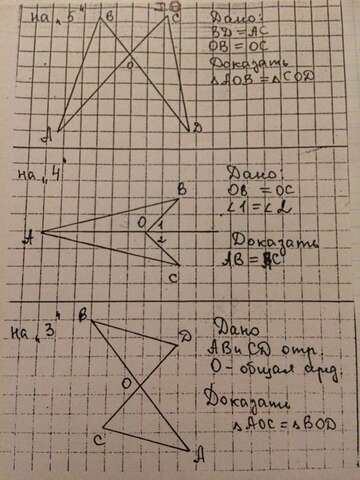 на „5"
B
C
O
A
D
Дано:
BD = AC
OB = OC
Доказать
△AOB = △COD
на „4"
B
A
O
1
2
C
Дано:
OB = OC
∠1 = ∠2
Доказать
AB = AC
на „3"
B
D
O
C
A
Дано
AB и CD отр.
O - общая сред.
Доказать
△AOC = △BOD